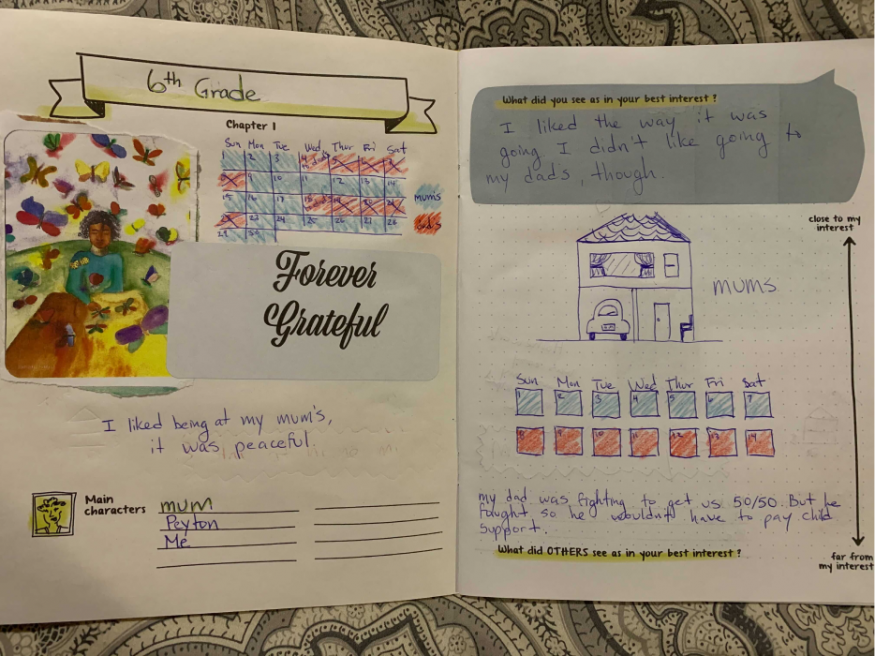 6th Grade
Chapter 1
Sun Mon Tue Wed Thur Fri Sat
1 2 3 4
9 10 11 12 13 14
15 16 17
23 24 25 26 27 28
29 30
mums
dads
Forever
Grateful
I liked being at my mum's,
it was peaceful.
Main
characters
mum
Peyton
Me
What did you see as in your best interest?
I liked the way it was
going I didn't like going to
my dads, though.
close to my
interest
mums
Sun Mon Tue Wed Thur Fri Sat
1 2 3 4 5 6 7
8 9 10 11 12 13 14
my dad was fighting to get us 50/50. But he
fought so he wouldn't have to pay child
support.
What did OTHERS see as in your best interest?
far from
my interest